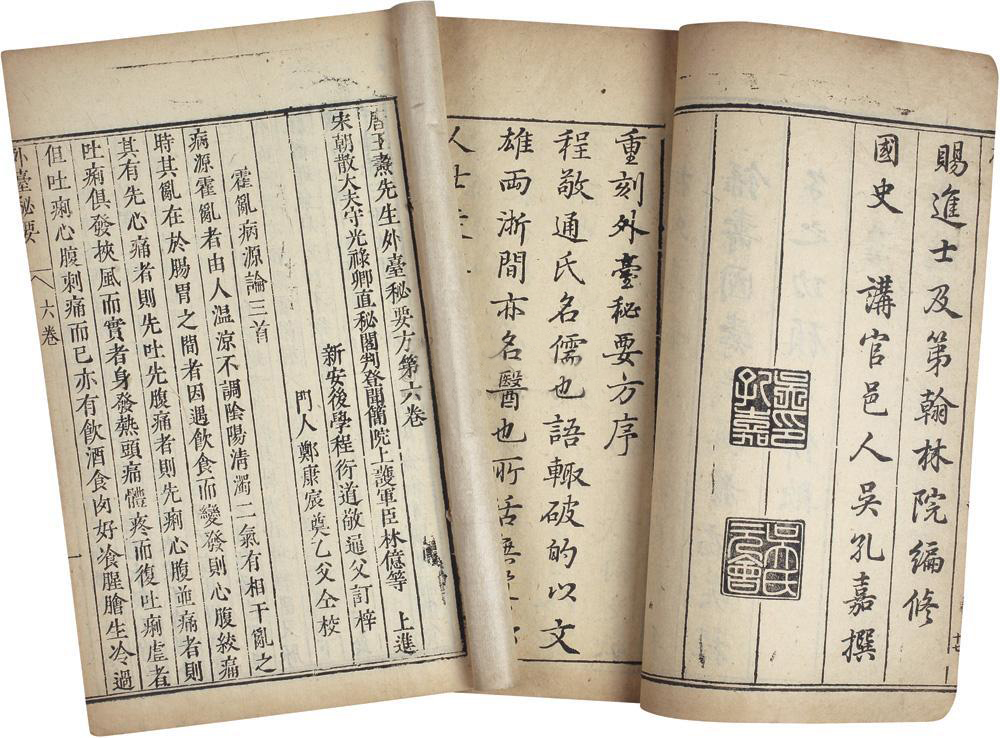 賜進士及第翰林院編修
國史 講官邑人吳孔嘉撰
吳孔嘉印
吳氏元會
重刻外臺秘要方序
程敬通氏名儒也語輙破的以文
雄両浙間亦名醫也所活
人士
唐王燾先生外臺秘要方第六卷
宋朝散大夫守光祿卿直秘閣判登聞簡院上護軍臣林億等 上進
新安後學程衍道敬通父訂梓
門人鄭康宸奠乙父仝校
霍亂病源論三首
病源霍亂者由人温涼不調陰陽清濁二氣有相干亂之
時其亂在於腸胃之間者因遇飲食而變發則心腹絞痛
其有先心痛者則先吐先腹痛者則先痢心腹並痛者則
吐痢俱發挾風而實者身發熱頭痛體疼而復吐痢虛者
但吐痢心腹刺痛而已亦有飲酒食肉好飡腥膾生冷過
外臺秘要 六卷